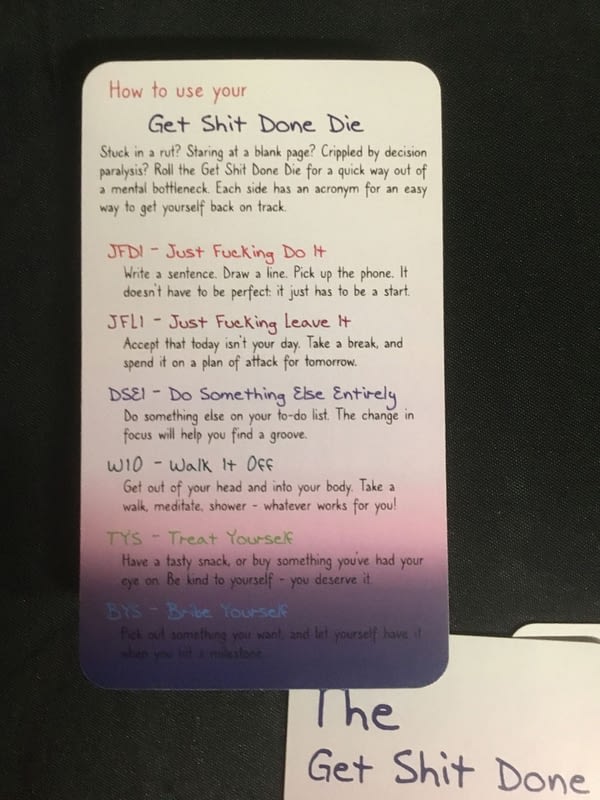 How to use your
Get Shit Done Die
Stuck in a rut? Staring at a blank page? Crippled by decision
paralysis? Roll the Get Shit Done Die for a quick way out of
a mental bottleneck. Each side has an acronym for an easy
way to get yourself back on track.
JFDI - Just Fucking Do It
Write a sentence. Draw a line. Pick up the phone. It
doesn't have to be perfect: it just has to be a start.
JFLI - Just Fucking Leave It
Accept that today isn't your day. Take a break, and
spend it on a plan of attack for tomorrow.
DSEI - Do Something Else Entirely
Do something else on your to-do list. The change in
focus will help you find a groove.
WIO - Walk It Off
Get out of your head and into your body. Take a
walk, meditate, shower - whatever works for you!
TYS - Treat Yourself
Have a tasty snack, or buy something you've had your
eye on. Be kind to yourself - you deserve it.
BYS - Bribe Yourself
Pick out something you want, and let yourself have it
when you hit a milestone.
The
Get Shit Done